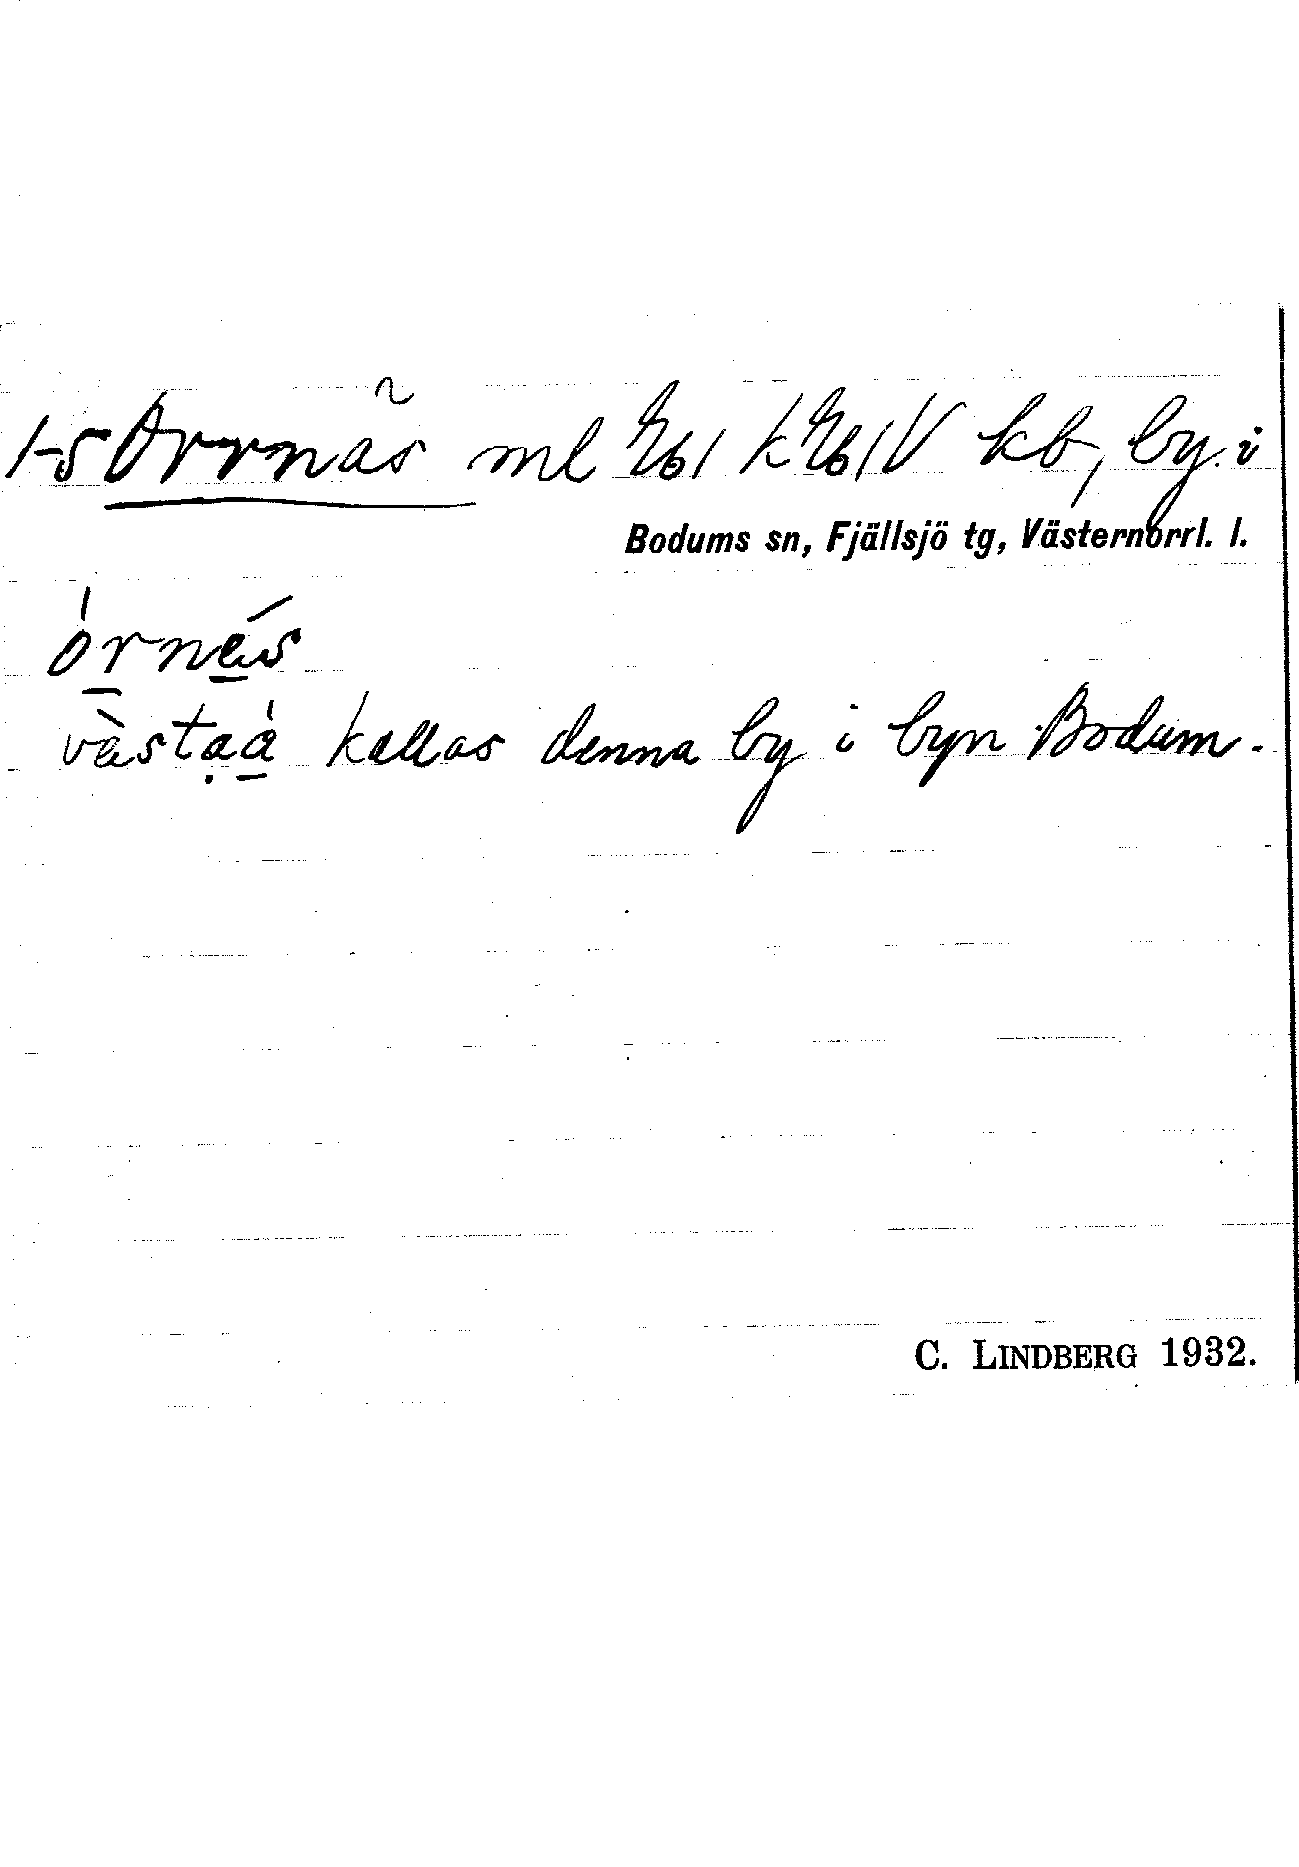 1-5 Orrnäs ml kb, by i
Bodums sn, Fjällsjö tg, Västernorrl. l.
órnés
västaå kallas denna by i byn Bodum.
C. LINDBERG 1932.